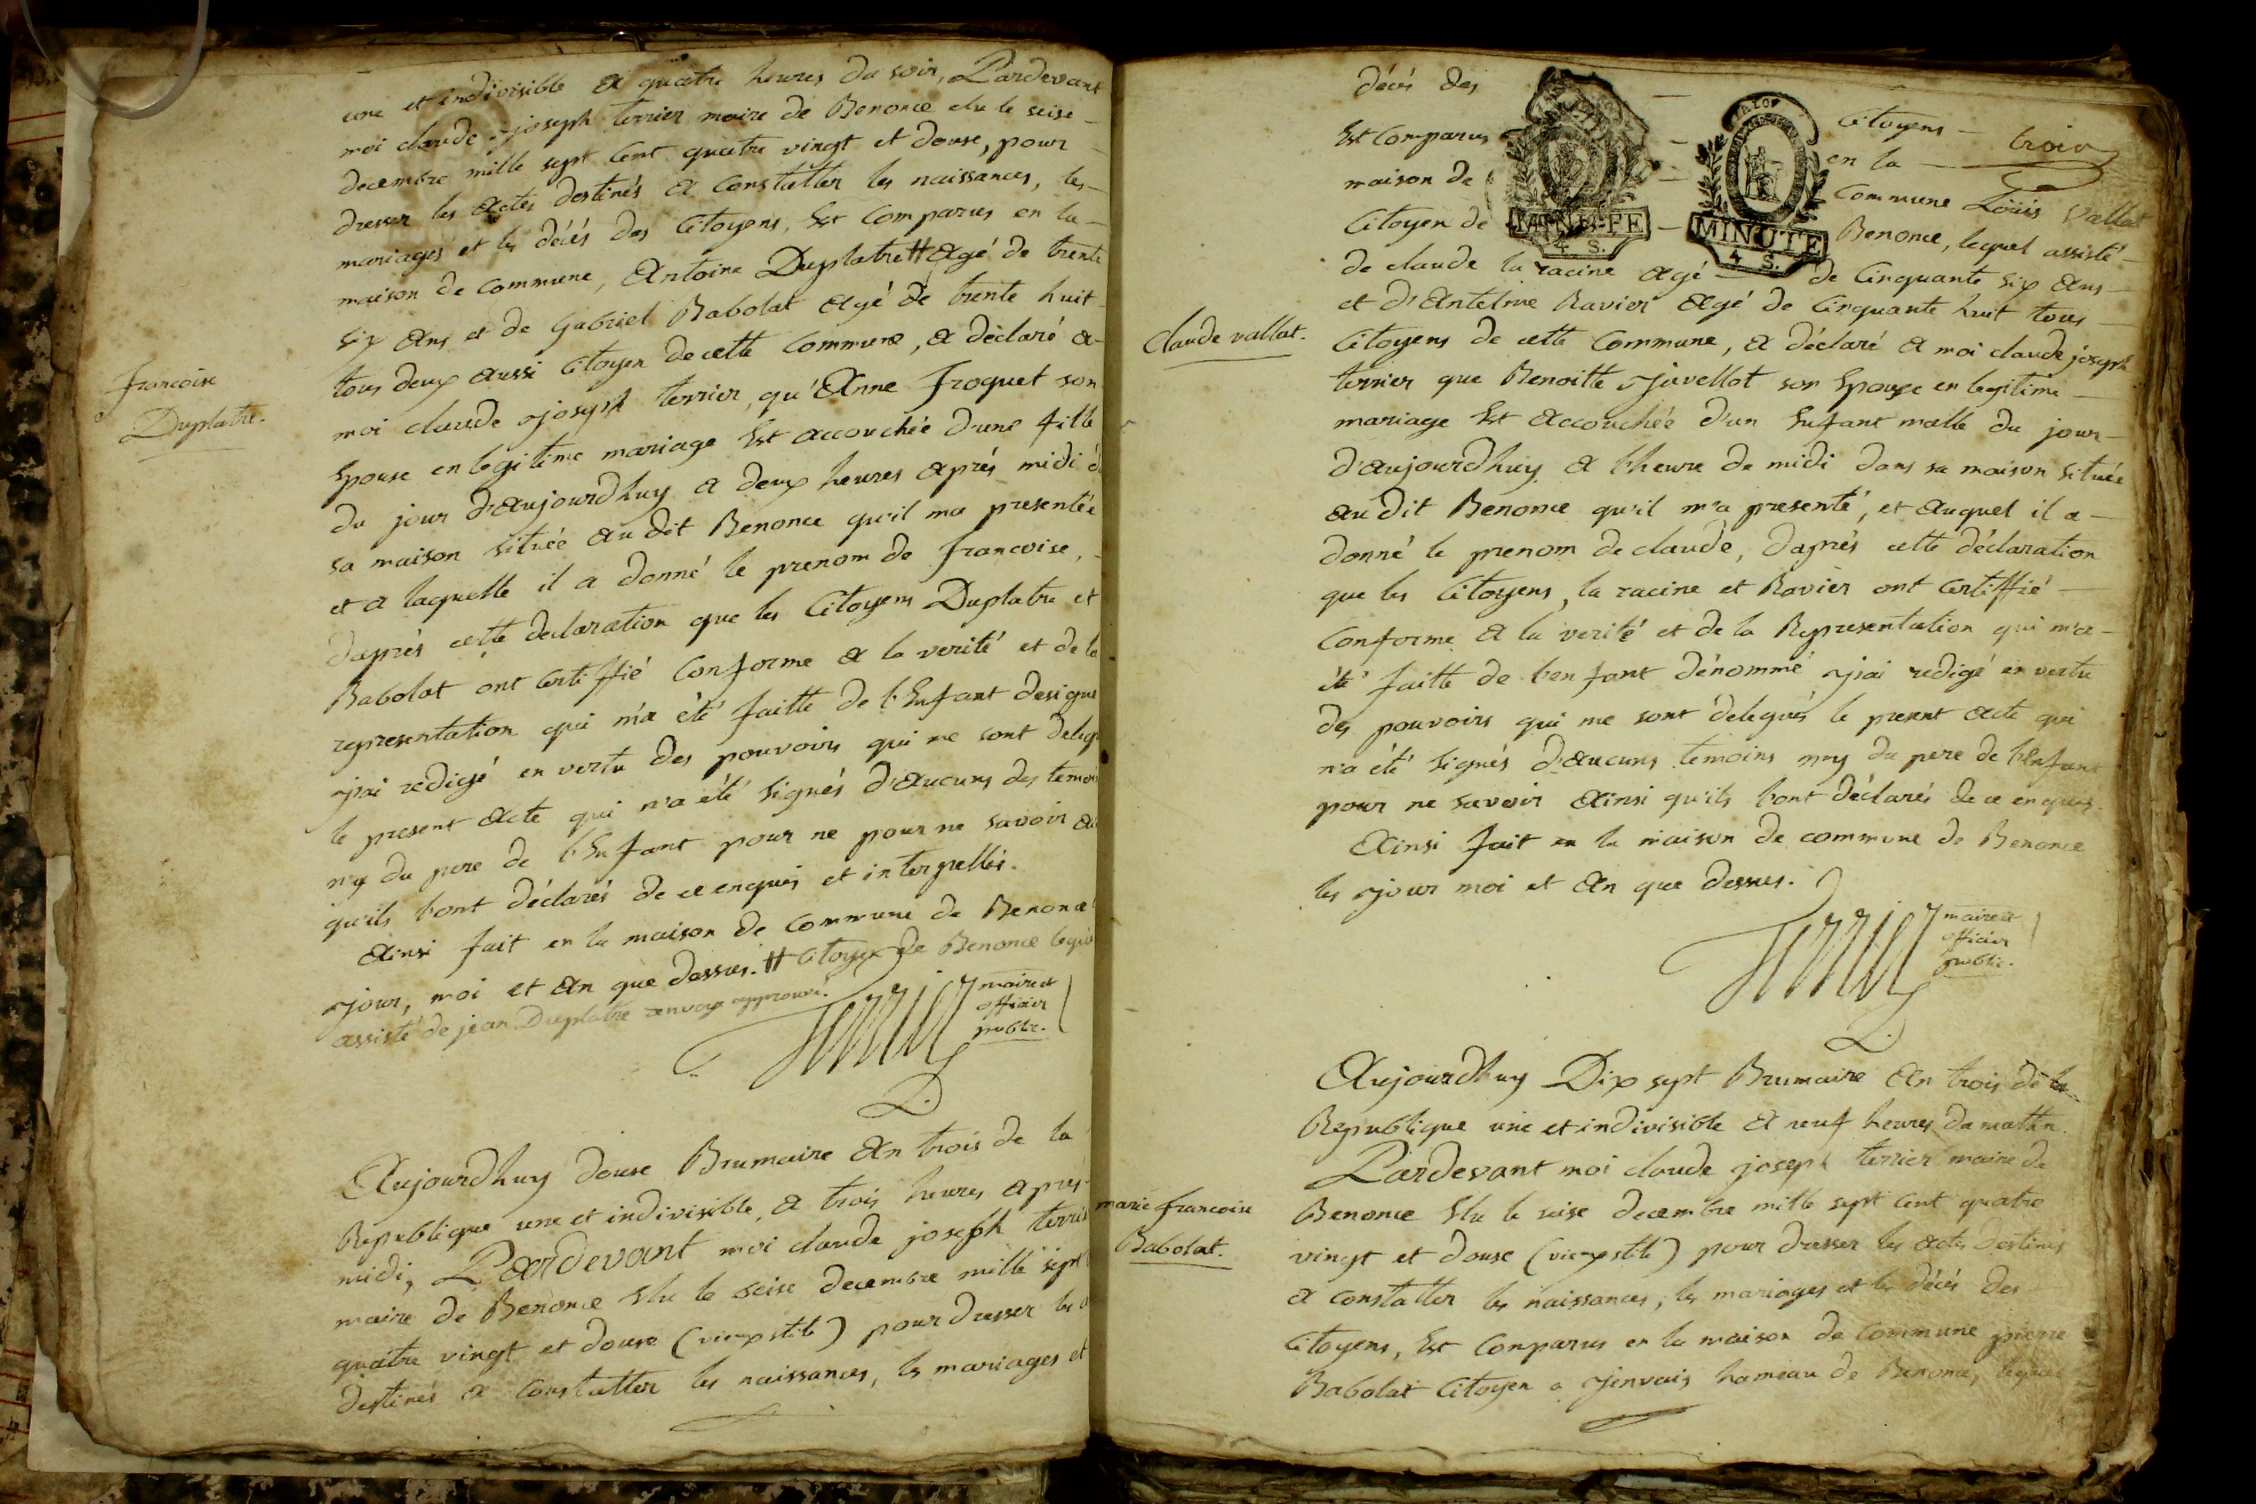 une et indivisible a quatre heures du soir, Pardevant
moi claude joseph terrier maire de Benonce elu le seise
decembre mille sept cent quatre vingt et douse, pour
dresser les actes destinés a constatter les naissances, les
mariages et les décés des Citoyens, Est Comparus en la
maison de commune, Antoine Duplatre # agé de trente
six ans et de Gabriel Babolat agé de trente huit
tous deux aussi Citoyen de cette Commune, a déclaré a
francoise
Duplatre.
moi claude joseph terrier, qu'Anne froquet son
Epouse en legitime mariage Est accouchée d'une fille
du jour d'aujourdhuy a deux heures aprés midi
sa maison située au dit Benonce qu'il ma presentée
et a laquelle il a donné le prenom de francoise,
daprés cette declaration que les Citoyens Duplatre et
Babolat ont certiffié Conforme a la verité et de la
representation qui m'a été faitte de l'Enfant designé
j'ai redigé en vertu des pouvoirs qui me sont delegu
le present acte qui n'a été signés d'aucuns des temoins
n'y du pere de l'Enfant pour ne pour ne savoir
qu'ils l'ont déclarés de ce enquis et interpellés.
Ainsi fait en la maison de Commune de Benonce
jour, moi et an que dessus. # Citoyen de Benonce lequel
assisté de jean Duplatre renvoy approuvé.
Terrier maire et
officier
public.
Aujourdhuy douse Brumaire an trois de la
Republique une et indivisible, a trois heures apres
midi, Pardevant moi claude joseph terrier
maire de Benonce Elu le seise decembre mille sept
quatre vingt et douse (vieux stile) pour dresser les
destinés a constatter les naissances, les mariages et
décés des Citoyens trois
Est Comparus en la
maison de Commune Loüis Vallat
Citoyen de Benonce, lequel assisté
MINUTE
4 S.
MINUTE
4 S.
de claude la racine agé de Cinquante six ans
et d'Antelme Ravier agé de Cinquante huit tous
Claude vallat.
Citoyens de cette Commune, a déclaré a moi claude joseph
terrier que Benoitte Javellot son Epouse en legitime
mariage Est accouchée d'un Enfant malle du jour
d'aujourdhuy a l'heure de midi dans sa maison située
au dit Benonce qu'il m'a presenté, et auquel il a
donné le prenom de claude, daprés cette déclaration
que les Citoyens, la racine et Ravier ont certiffié
Conforme a la verité et de la Representation qui m'a
été faitte de l'enfant dénommé j'ai redigé en vertu
des pouvoirs qui me sont delegués le present acte qui
n'a été signés d'aucuns temoins n'y du pere de l'Enfant
pour ne savoir ainsi qu'ils l'ont déclarés de ce enquis.
Ainsi fait en la maison de commune de Benonce
les jour moi et an que dessus.
Terrier maire et
officier
public.
Aujourdhuy Dix sept Brumaire an trois de la
Republique une et indivisible a neuf heures du matin.
Pardevant moi claude joseph terrier maire de
marie francoise
Babolat.
Benonce Elu le seise decembre mille sept cent quatre
vingt et douse (vieux stile) pour dresser les actes destinés
a constatter les naissances, les mariages et les décés des
Citoyens, Est Comparus en la maison de Commune pierre
Babolat Citoyen a Jinvais hameau de Benonce, lequel